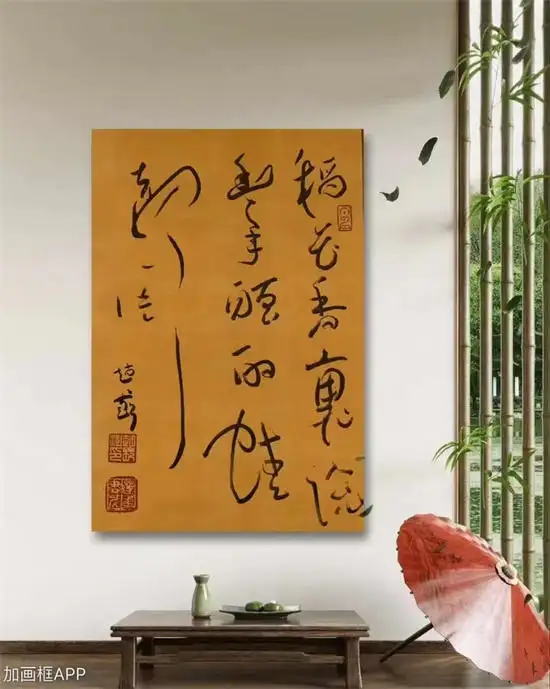 稻花香裏說
豐年聽取蛙
聲
一片
加画框APP